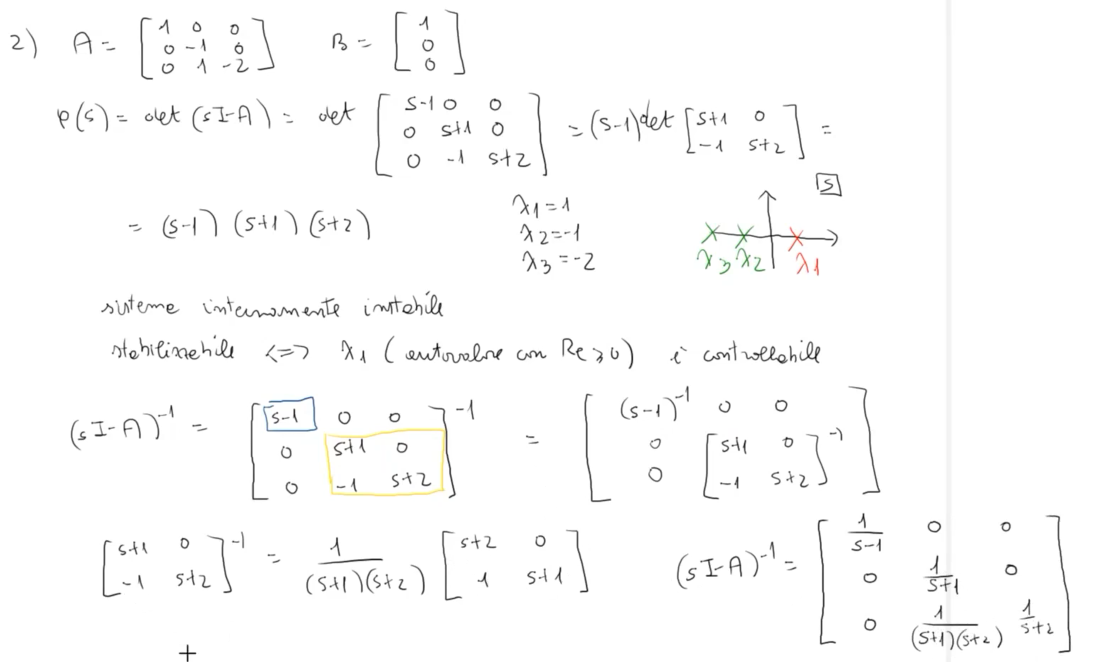 2) A = [1 0 0; 0 -1 0; 0 1 -2] B = [1; 0; 0]
p(s) = det (sI-A) = det [s-1 0 0; 0 s+1 0; 0 -1 s+2] = (s-1) det [s+1 0; -1 s+2] =
= (s-1) (s+1) (s+2)
λ1 = 1
λ2 = -1
λ3 = -2
s
λ3 λ2 λ1
sistema internamente instabile
stabilizzabile <=> λ1 (autovalore con Re ≥ 0) è controllabile
(sI-A)^-1 = [s-1 0 0; 0 s+1 0; 0 -1 s+2]^-1 = [(s-1)^-1 0 0; 0 [s+1 0; 0 -1 s+2]^-1]
[s+1 0; -1 s+2]^-1 = 1/((s+1)(s+2)) [s+2 0; 1 s+1] (sI-A)^-1 = [1/(s-1) 0 0; 0 1/(s+1) 0; 0 1/((s+1)(s+2)) 1/(s+2)]